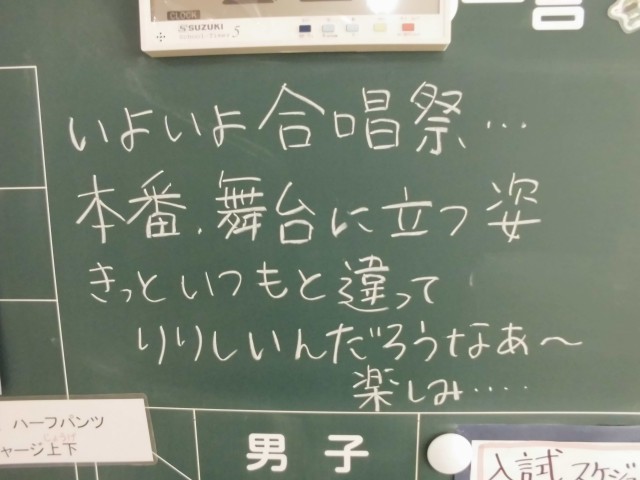 CLOCK
SUZUKI
5
いよいよ合唱祭…
本番、舞台に立つ姿
きっといつもと違って
りりしいんだろうなぁ〜
楽しみ‥‥‥
ハーフパンツ
ャージ上下
男子
入試スケジ